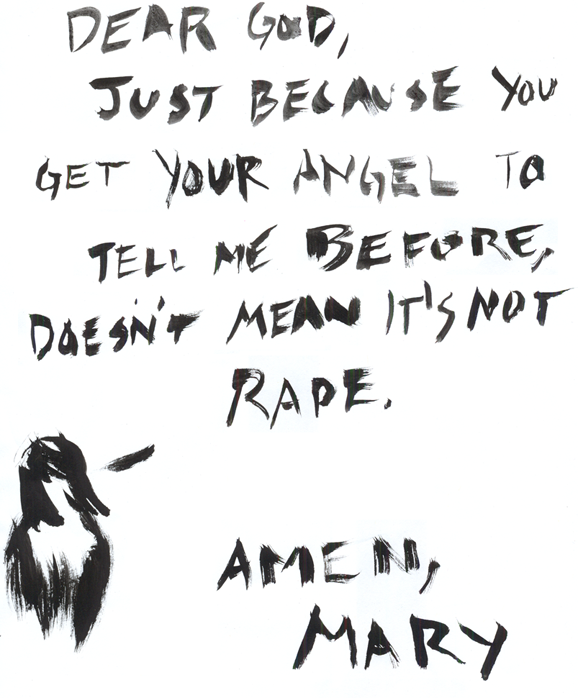 DEAR GOD,
JUST BECAUSE YOU
GET YOUR ANGEL TO
TELL ME BEFORE,
DOESN'T MEAN IT'S NOT
RAPE.
AMEN,
MARY